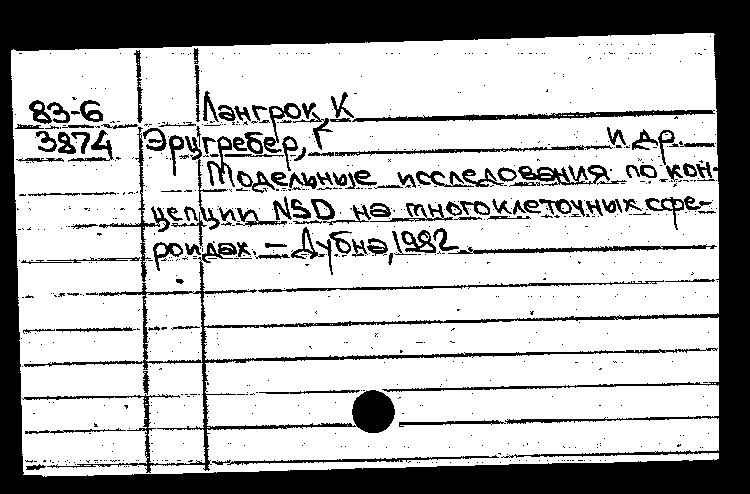 83-6 Лангрок, К
3874 Эрцгребер, Г и др.
Модельные исследования по кон-
цепции NSD на многоклеточных сфе-
роидах. – Дубна, 1982.